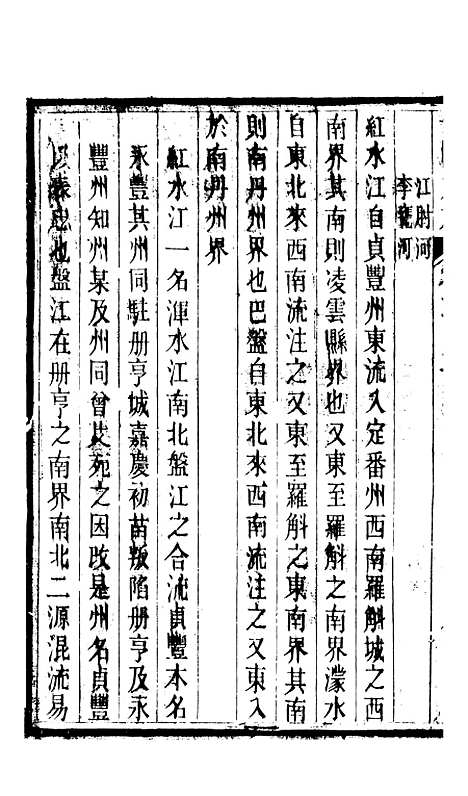 江肘河
李
河
紅水江自貞豐州東流入定番州西南羅斛城之西
南界其南則凌雲縣界也又東至羅斛之南界濛水
自東北來西南流注之又東至羅斛之東南界其南
則南丹州界也巴盤自東北來西南流注之又東入
於南丹州界
紅水江一名渾水江南北盤江之合流貞豐本名
永豐其州同駐册亨城嘉慶初苗叛陷册亨及永
豐州知州某及州同曾艾死之因改是州名貞豐
以表忠也盤江在册亨之南界南北二源混流易